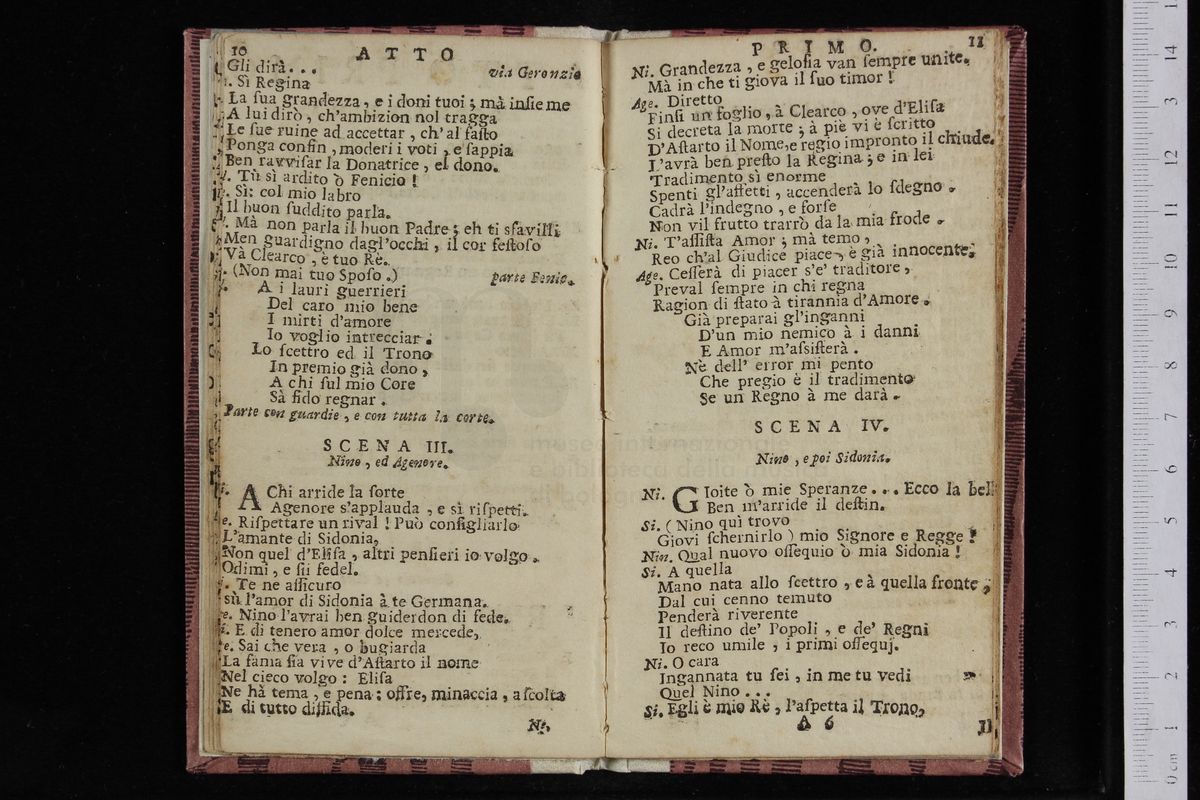 10 ATTO
Gli dirà... via Geronzio
Sì Regina
La ſua grandezza, e i doni tuoi; mà inſieme
A lui dirò, ch'ambizion nol tragga
Le ſue ruine ad accettar, ch'al faſto
Ponga confin, moderi i voti, e ſappia
Ben ravviſar la Donatrice, el dono.
Tù sì ardito ò Fenicio!
Sì: col mio labro
Il buon ſuddito parla.
Mà non parla il buon Padre; eh ti sfavilli
Men guardigno dagl'occhi, il cor feſtoſo
Và Clearco, è tuo Rè.
(Non mai tuo Spoſo.) parte Fenic.
A i lauri guerrieri
Del caro mio bene
I mirti d'amore
Io voglio intrecciar:
Lo ſcettro ed il Trono
In premio già dono,
A chi ſul mio Core
Sà fido regnar.
Parte con guardie, e con tutta la corte.
SCENA III.
Nino, ed Agenore.
A Chi arride la ſorte
Agenore s'applauda, e sì riſpetti.
Riſpettare un rival! Può conſigliarlo
L'amante di Sidonia,
Non quel d'Eliſa, altri penſieri io volgo.
Odimi, e ſii fedel.
Te ne aſſicuro
sù l'amor di Sidonia à te Germana.
Nino l'avrai ben guiderdon di fede.
E di tenero amor dolce mercede,
Sai che vera, o bugiarda
La fama ſia vive d'Aſtarto il nome
Nel cieco volgo: Eliſa
Ne hà tema, e pena: offre, minaccia, aſcolta
E di tutto diffida.
Ni.
PRIMO. 11
Ni. Grandezza, e geloſia van ſempre unite.
Mà in che ti giova il ſuo timor!
Age. Diretto
Finſi un foglio, à Clearco, ove d'Eliſa
Si decreta la morte; à piè vi è ſcritto
D'Aſtarto il Nome, e regio impronto il chiude.
L'avrà ben preſto la Regina; e in lei
Tradimento sì enorme
Spenti gl'affetti, accenderà lo ſdegno.
Cadrà l'indegno, e forſe
Non vil frutto trarrò da la mia frode.
Ni. T'aſſiſta Amor; mà temo,
Reo ch'al Giudice piace, è già innocente.
Age. Ceſſerà di piacer s'e' traditore,
Preval ſempre in chi regna
Ragion di ſtato à tirannia d'Amore.
Già preparai gl'inganni
D'un mio nemico à i danni
E Amor m'aſsiſterà.
Nè dell' error mi pento
Che pregio è il tradimento
Se un Regno à me darà.
SCENA IV.
Nino, e poi Sidonia.
Ni. GIoite ò mie Speranze... Ecco la bell
Ben m'arride il deſtin.
Si. (Nino quì trovo
Giovi ſchernirlo) mio Signore e Regge!
Nin. Qual nuovo oſſequio ò mia Sidonia!
Si. A quella
Mano nata allo ſcettro, e à quella fronte,
Dal cui cenno temuto
Penderà riverente
Il deſtino de' Popoli, e de' Regni
Io reco umile, i primi oſſequj.
Ni. O cara
Ingannata tu ſei, in me tu vedi
Quel Nino...
Si. Egli è mio Rè, l'aſpetta il Trono,
A 6